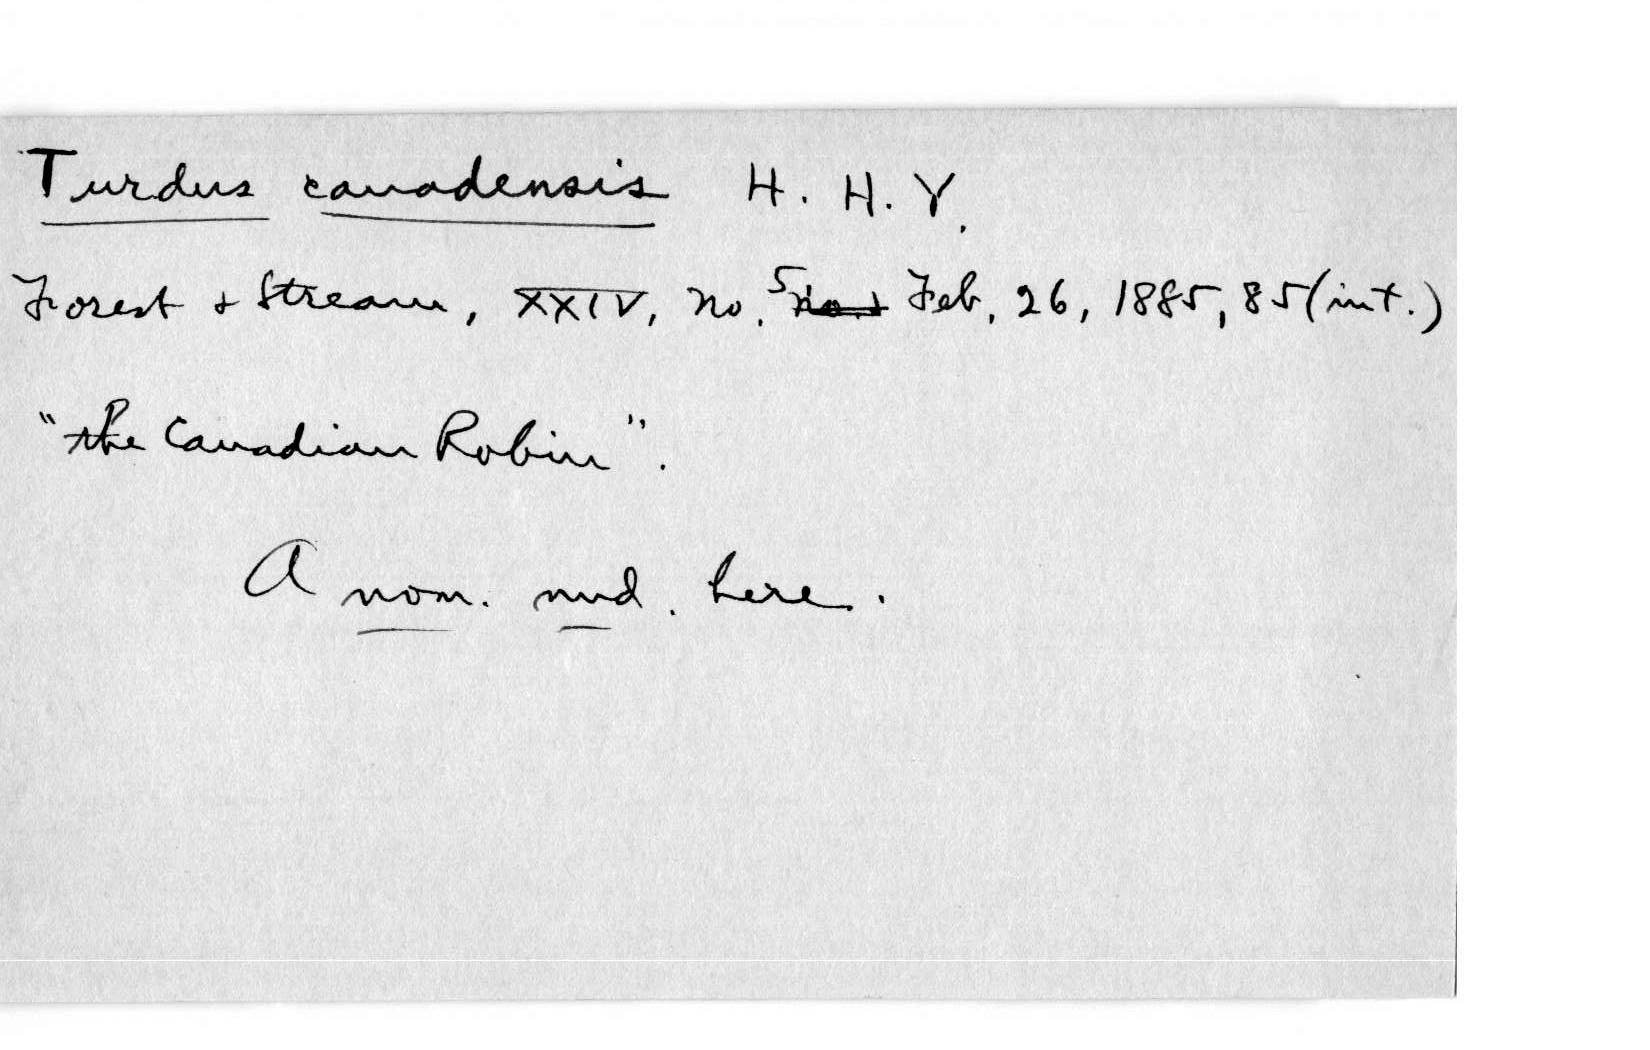 Turdus canadensis H. H. Y.
Forest & Stream, XXIV, no. 5 Feb. 26, 1885, 85 (int.)
"the Canadian Robin".
A nom. nud. here.